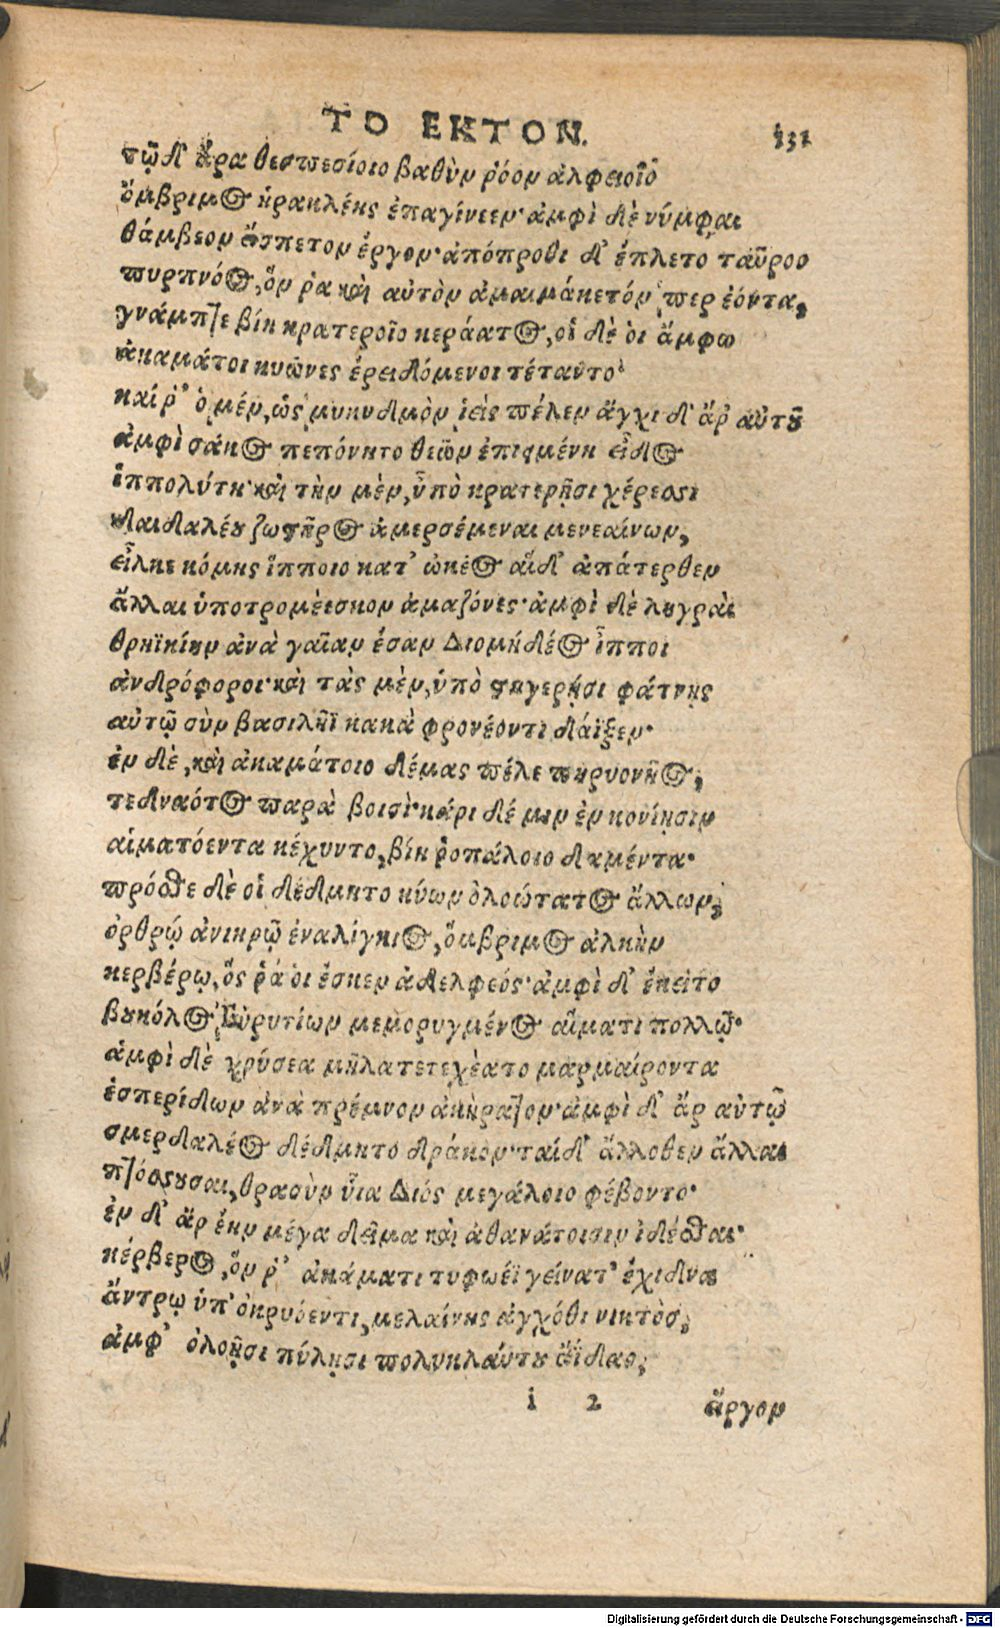 ΤΟ ΕΚΤΟΝ. 131
τῷ δ' ἄρα θεσπεσίοιο βαθὺν ῥόον ἀλφειοῖο
ὄμβριμος ἡρακλέης ἐπαγίνεεν· ἀμφὶ δὲ νύμφαι
θάμβεον ἄσπετον ἔργον· ἀπόπροθι δ' ἔπλετο ταῦρος
πυρπνόος, ὅν ῥα καὶ αὐτὸν ἀμαιμάκετόν περ ἐόντα,
γνάμπτε βίῃ κρατεροῖο κεράατος, οἱ δέ οἱ ἄμφω
ἀκαμάτοι μυῶνες ἐρειδόμενοι τέταντο·
καί ῥ' ὁ μέν, ὡς μυκηδμὸν ἱεὶς πέλεν ἄγχι δ' ἄρ αὐτοῦ
ἀμφὶ σάκος πεπόνητο θεῶν ἐπιςμένη εἶδος
ἱππολύτη· καὶ τὴν μὲν, ὑπὸ κρατερῇσι χέρεσσι
δαιδαλέου ζωςῆρος ἀμερσέμεναι μενεαίνων,
εἷλκε κόμης ἵπποιο κατ' ὠκέος αἱ δ' ἀπάτερθεν
ἄλλαι ὑποτρομέεισκον ἀμαζόνες· ἀμφὶ δὲ λυγραὶ
θρηϊκίην ἀνὰ γαῖαν ἔσαν Διομήδέος ἵπποι
ἀνδρόφοροι· καὶ τὰς μὲν, ὑπὸ ςυγερῇσι φάτνῃς
αὐτῷ σὺν βασιλῆϊ κακὰ φρονέοντι δάϊξεν·
ἐν δὲ, καὶ ἀκαμάτοιο δέμας πέλε πηρυονῆος,
τεθναότος παρὰ βουσὶ· κάρι δέ μιν ἐν κονίῃσιν
αἱματόεντα κέχυντο, βίῃ ῥοπάλοιο δαμέντα·
πρόσθε δὲ οἱ δέδμητο κύων ὀλοώτατος ἄλλων,
ὀρθρῴ ἀνιηρῷ ἐναλίγκιος, ὄμβριμος ἀλκὴν
κερβέρῳ, ὅς ῥά οἱ ἔσκεν ἀδελφεός· ἀμφὶ δ' ἔκειτο
βουκόλος Εὐρυτίων μεμορυγμένος αἵματι πολλῷ·
ἀμφὶ δὲ χρύσεα μῆλα τετεχέατο μαρμαίροντα
ἑσπερίδων ἀνὰ πρέμνον ἀκήρατον· ἀμφὶ δ' ἄρ αὐτῷ
σμερδαλέος δέδμητο δράκων· ταί δ' ἄλλοθεν ἄλλαι
πτόσσουσαι, θρασὺν ὗια Διός μεγάλοιο φέβοντο·
ἐν δ' ἄρ ἔην μέγα δεῖμα καὶ ἀθανάτοισιν ἰδέσθαι·
κέρβερος, ὅν ῥ' ἀκάματι τυφωέϊ γείνατ' ἔχιδνα
ἄντρῳ ὑπ' ὀκρυόεντι, μελαίνης ἀγχόθι νυκτὸς,
ἀμφ' ὀλοῇσι πύλῃσι πολυκλαύτου ἄϊδαο,
i 2 ἄργον
Digitalisierung gefördert durch die Deutsche Forschungsgemeinschaft - DFG